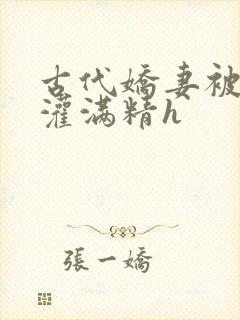 古代嬌妻被
灌滿精h
張一嬌